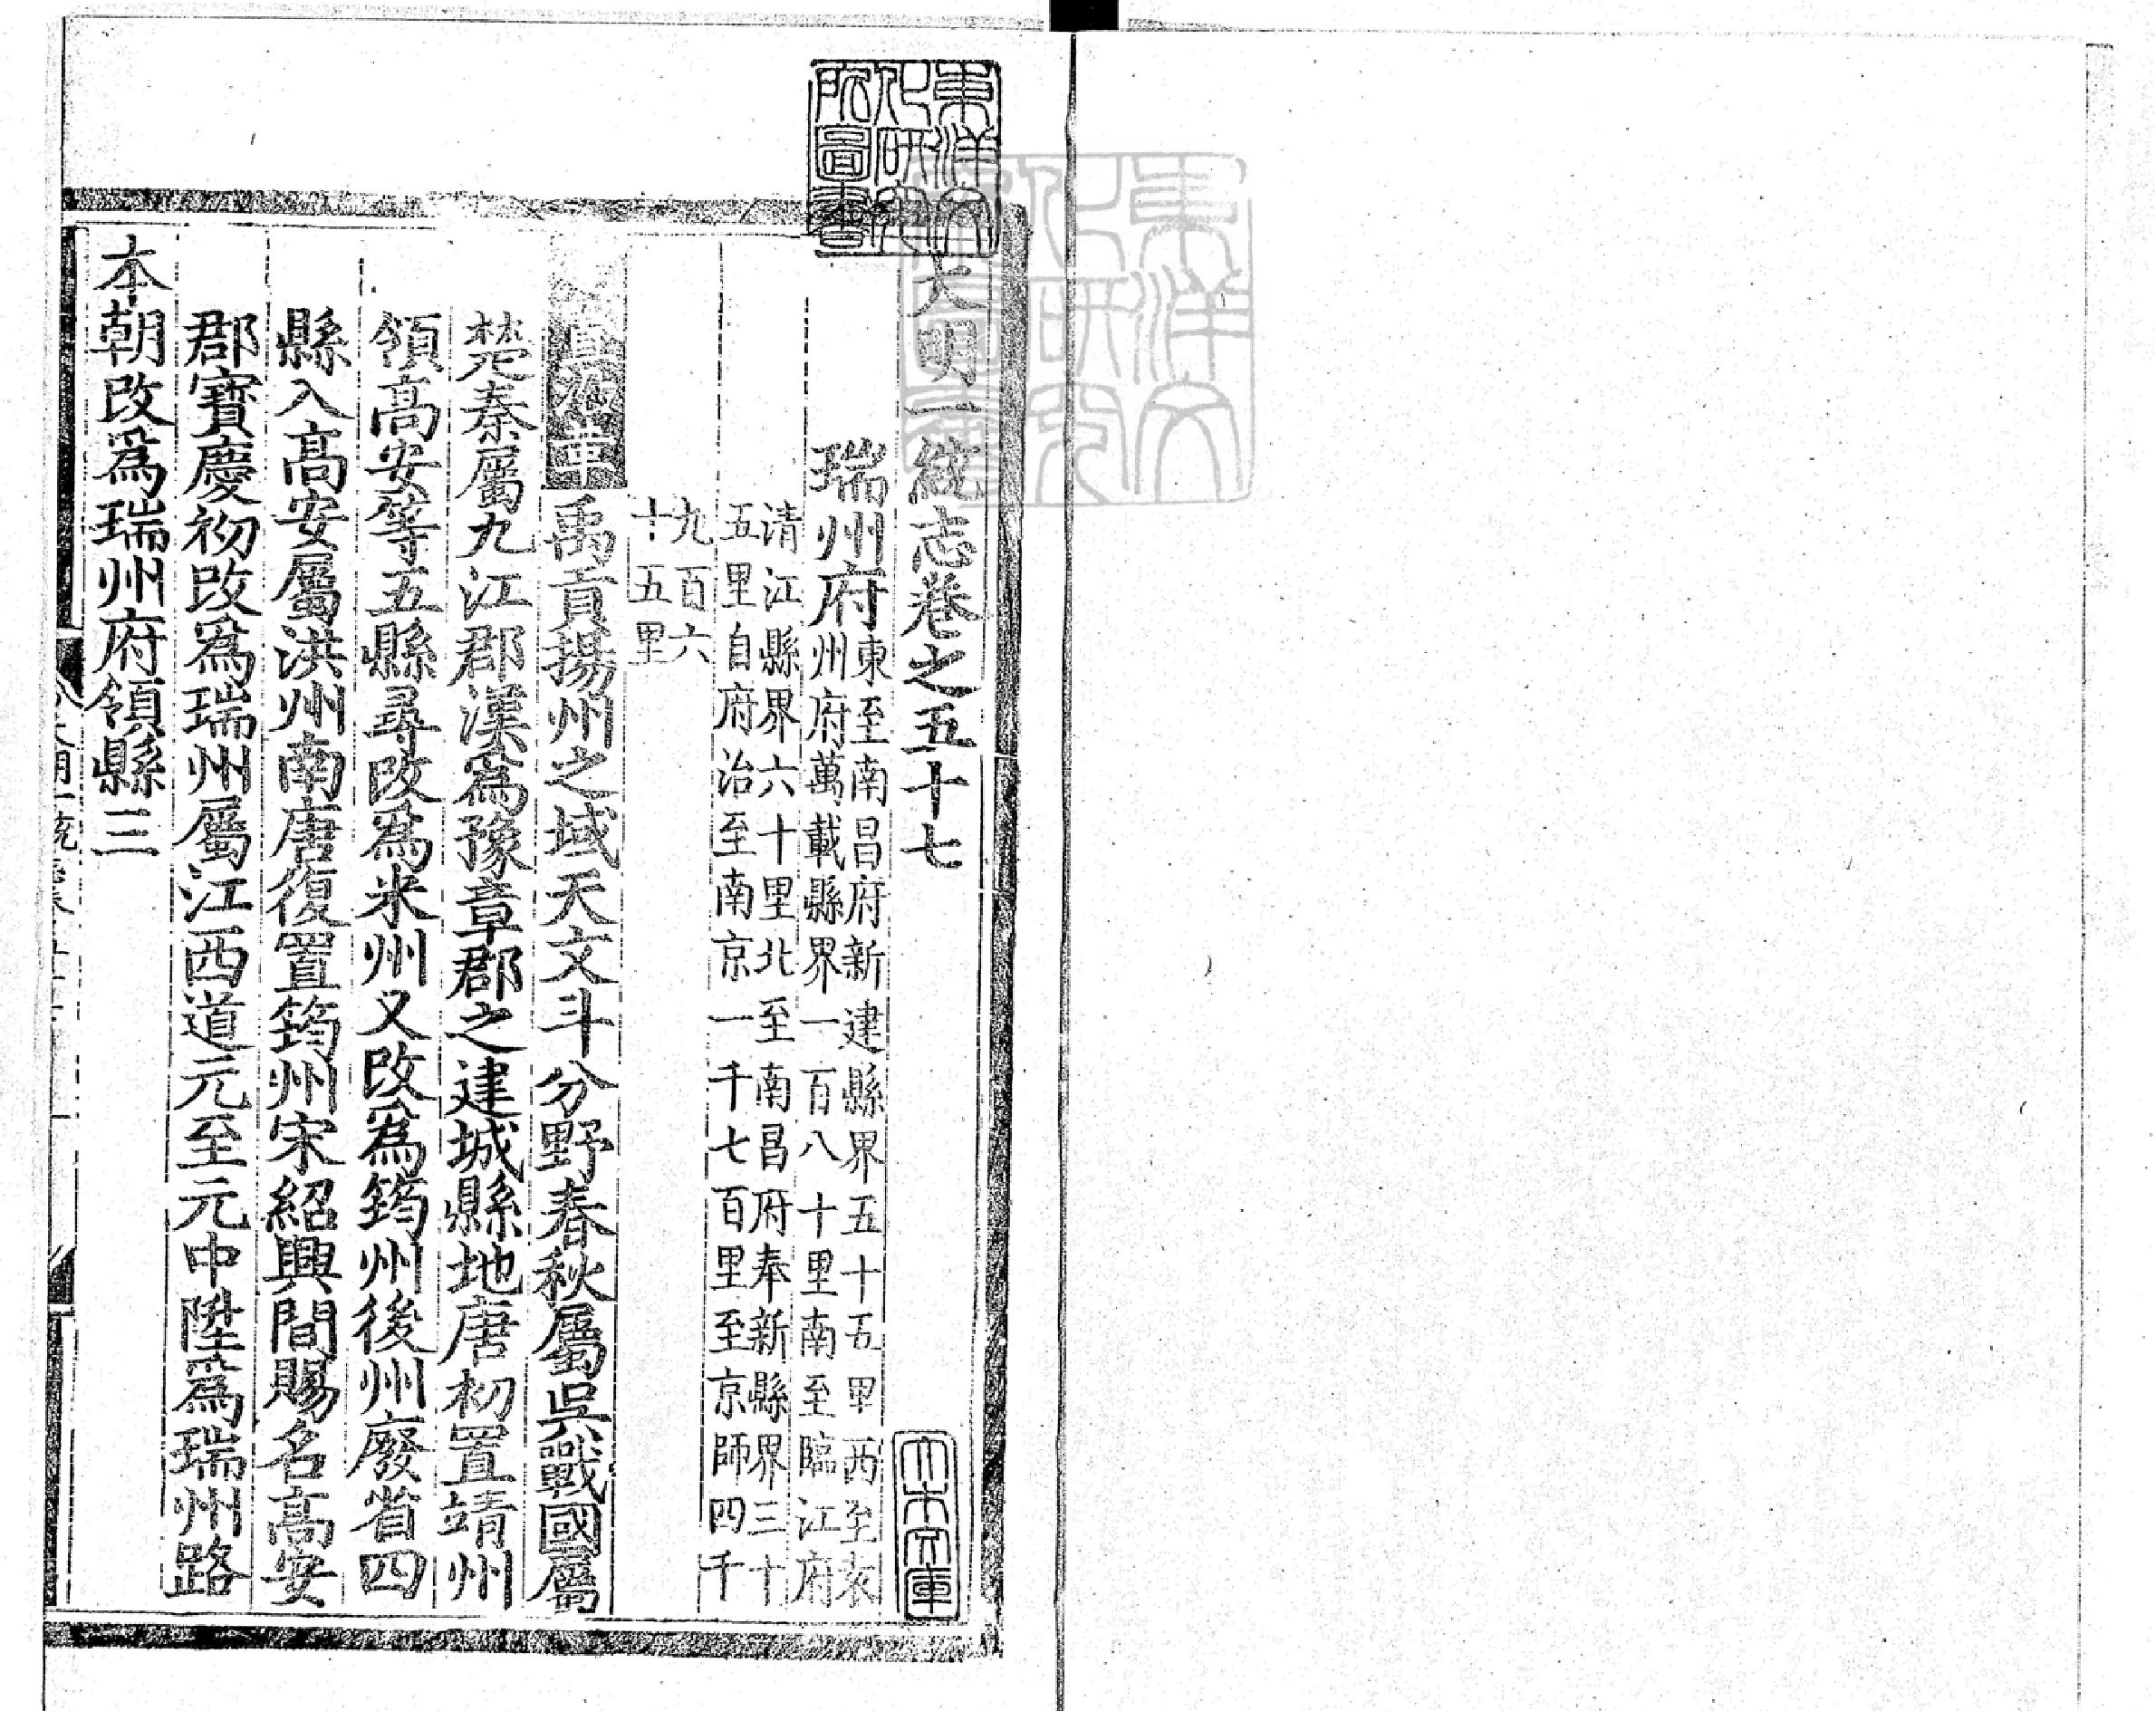 大明一統志卷之五十七
瑞州府
東至南昌府新建縣界五十五里西至袁
州府萬載縣界一百八十里南至臨江府
清江縣界六十里北至南昌府奉新縣界三十
五里自府治至南京一千七百里至京師四千
九百六
十五里
建置沿革禹貢揚州之域天文斗分野春秋屬吳戰國屬
楚秦屬九江郡漢爲豫章郡之建城縣地唐初置靖州
領高安等五縣尋改爲米州又改爲筠州後州廢省四
縣入高安屬洪州南唐復置筠州宋紹興間賜名高安
郡寶慶初改爲瑞州屬江西道元至元中陞爲瑞州路
本朝改爲瑞州府領縣三
東洋文
化研究
所圖書
大木文庫